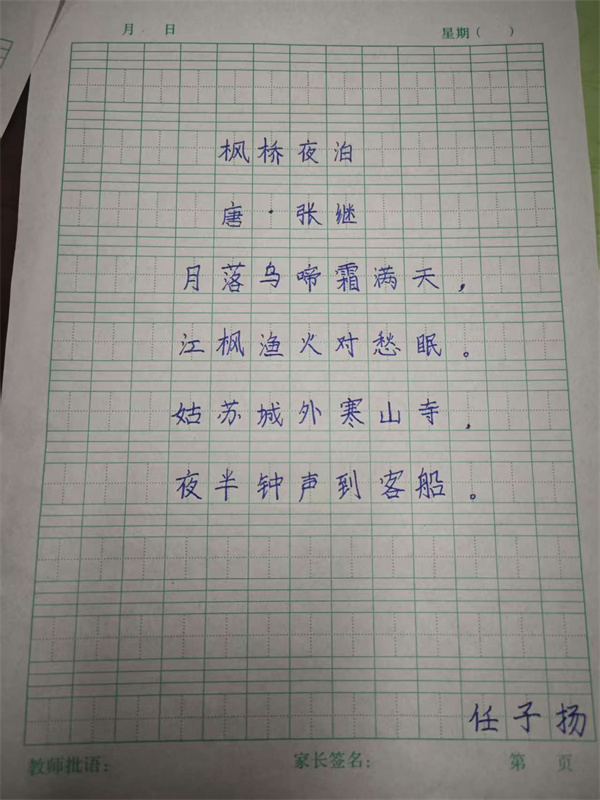 月 日 星期（ ）
枫桥夜泊
唐·张继
月落乌啼霜满天，
江枫渔火对愁眠。
姑苏城外寒山寺，
夜半钟声到客船。
任子扬
教师批语： 家长签名： 第 页